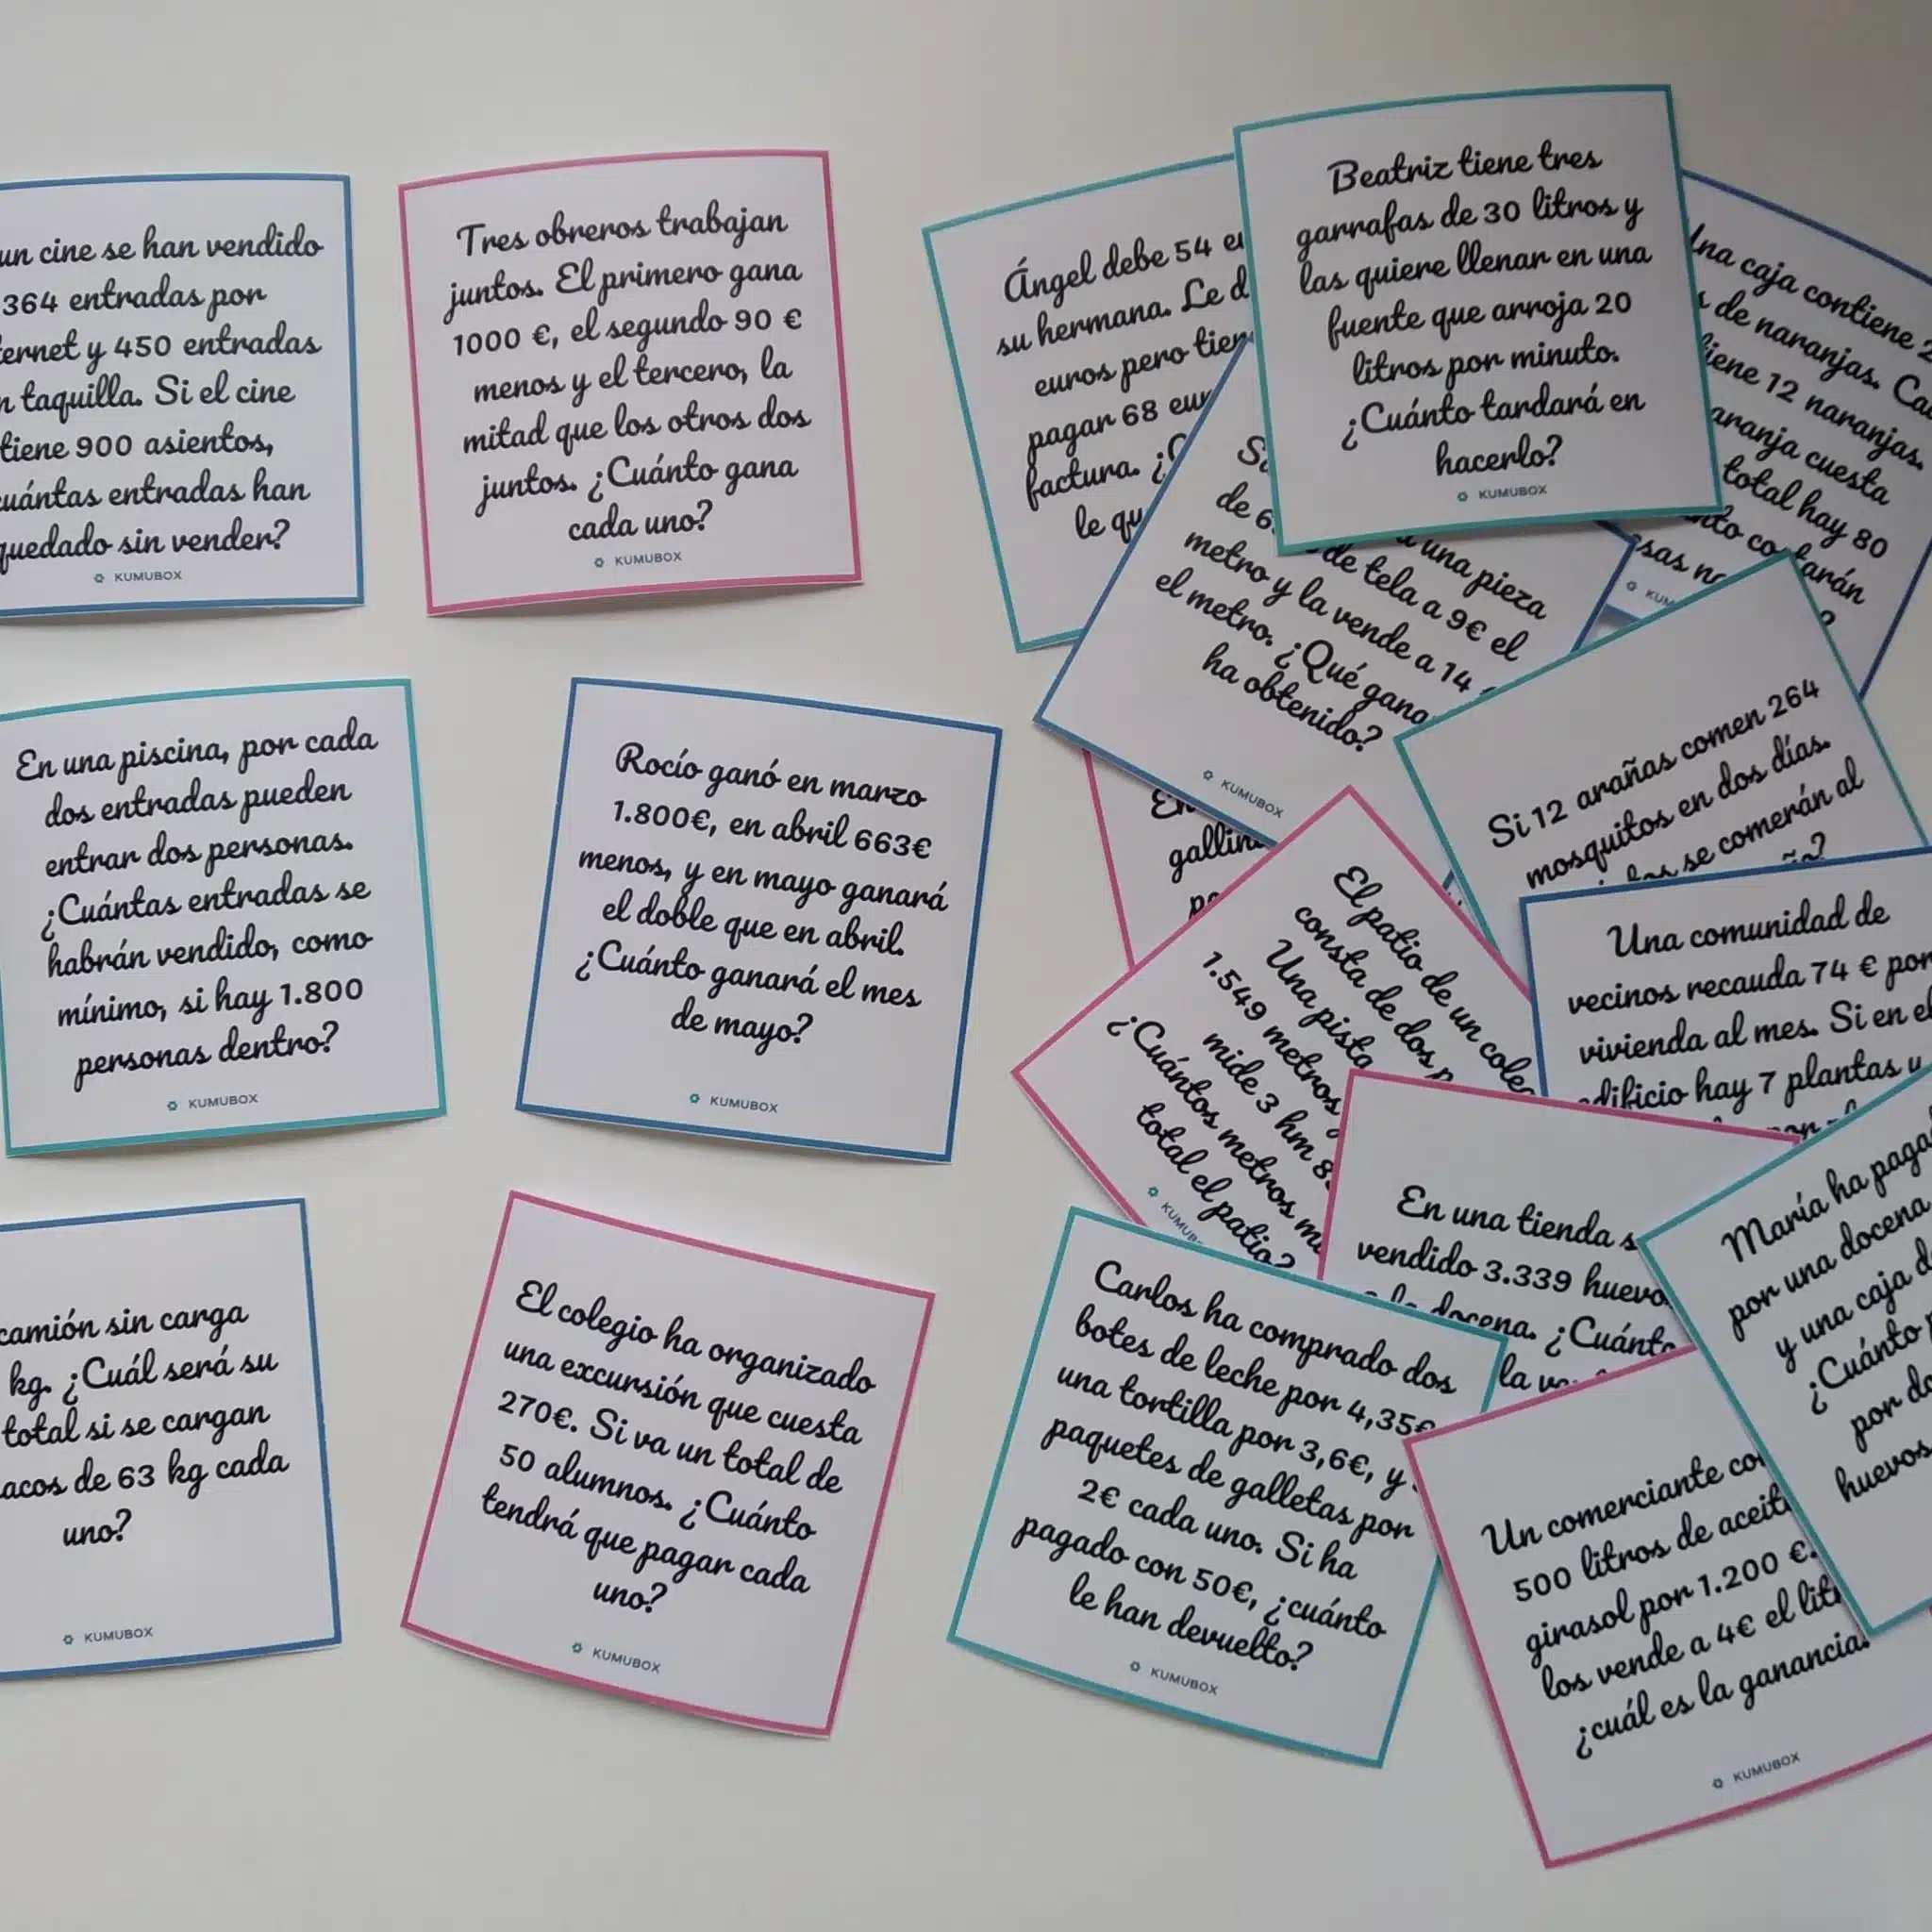 un cine se han vendido
364 entradas por
ernet y 450 entradas
n taquilla. Si el cine
tiene 900 asientos,
uántas entradas han
quedado sin vender?
KUMUBOX
Tres obreros trabajan
juntos. El primero gana
1000 €, el segundo 90 €
menos y el tercero, la
mitad que los otros dos
juntos. ¿Cuánto gana
cada uno?
KUMUBOX
En una piscina, por cada
dos entradas pueden
entrar dos personas.
¿Cuántas entradas se
habrán vendido, como
mínimo, si hay 1.800
personas dentro?
KUMUBOX
Rocío ganó en marzo
1.800€, en abril 663€
menos, y en mayo ganará
el doble que en abril.
¿Cuánto ganará el mes
de mayo?
KUMUBOX
camión sin carga
kg. ¿Cuál será su
total si se cargan
acos de 63 kg cada
uno?
KUMUBOX
El colegio ha organizado
una excursión que cuesta
270€. Si va un total de
50 alumnos. ¿Cuánto
tendrá que pagar cada
uno?
KUMUBOX
Ángel debe 54 eu
su hermana. Le d
euros pero tien
pagar 68 eur
factura. ¿C
le qu
Beatriz tiene tres
garrafas de 30 litros y
las quiere llenar en una
fuente que arroja 20
litros por minuto.
¿Cuánto tardará en
hacerlo?
KUMUBOX
Una caja contiene 2
de naranjas. Ca
iene 12 naranjas.
aranja cuesta
total hay 80
nto co tarán
sas no
KUM
una pieza
de 6 de tela a 9€ el
metro y la vende a 14
el metro. ¿Qué gana
ha obtenido?
KUMUBOX
Si 12 arañas comen 264
mosquitos en dos días.
se comerán al
En
gallin
El patio de un coleg
consta de dos p
Una pista
1.549 metros y
mide 3 hm 8
¿Cuántos metros m
total el patio?
KUMUB
Una comunidad de
vecinos recauda 74 € por
vivienda al mes. Si en el
edificio hay 7 plantas y
En una tienda s
vendido 3.339 huevo
docena. ¿Cuánto
la
María ha paga
por una docena
y una caja d
¿Cuánto p
por do
huevos
Carlos ha comprado dos
botes de leche por 4,35€
una tortilla por 3,6€, y
paquetes de galletas por
2€ cada uno. Si ha
pagado con 50€, ¿cuánto
le han devuelto?
KUMUBOX
Un comerciante co
500 litros de aceit
girasol por 1.200 €.
los vende a 4€ el lit
¿cuál es la ganancia
KUMUBOX